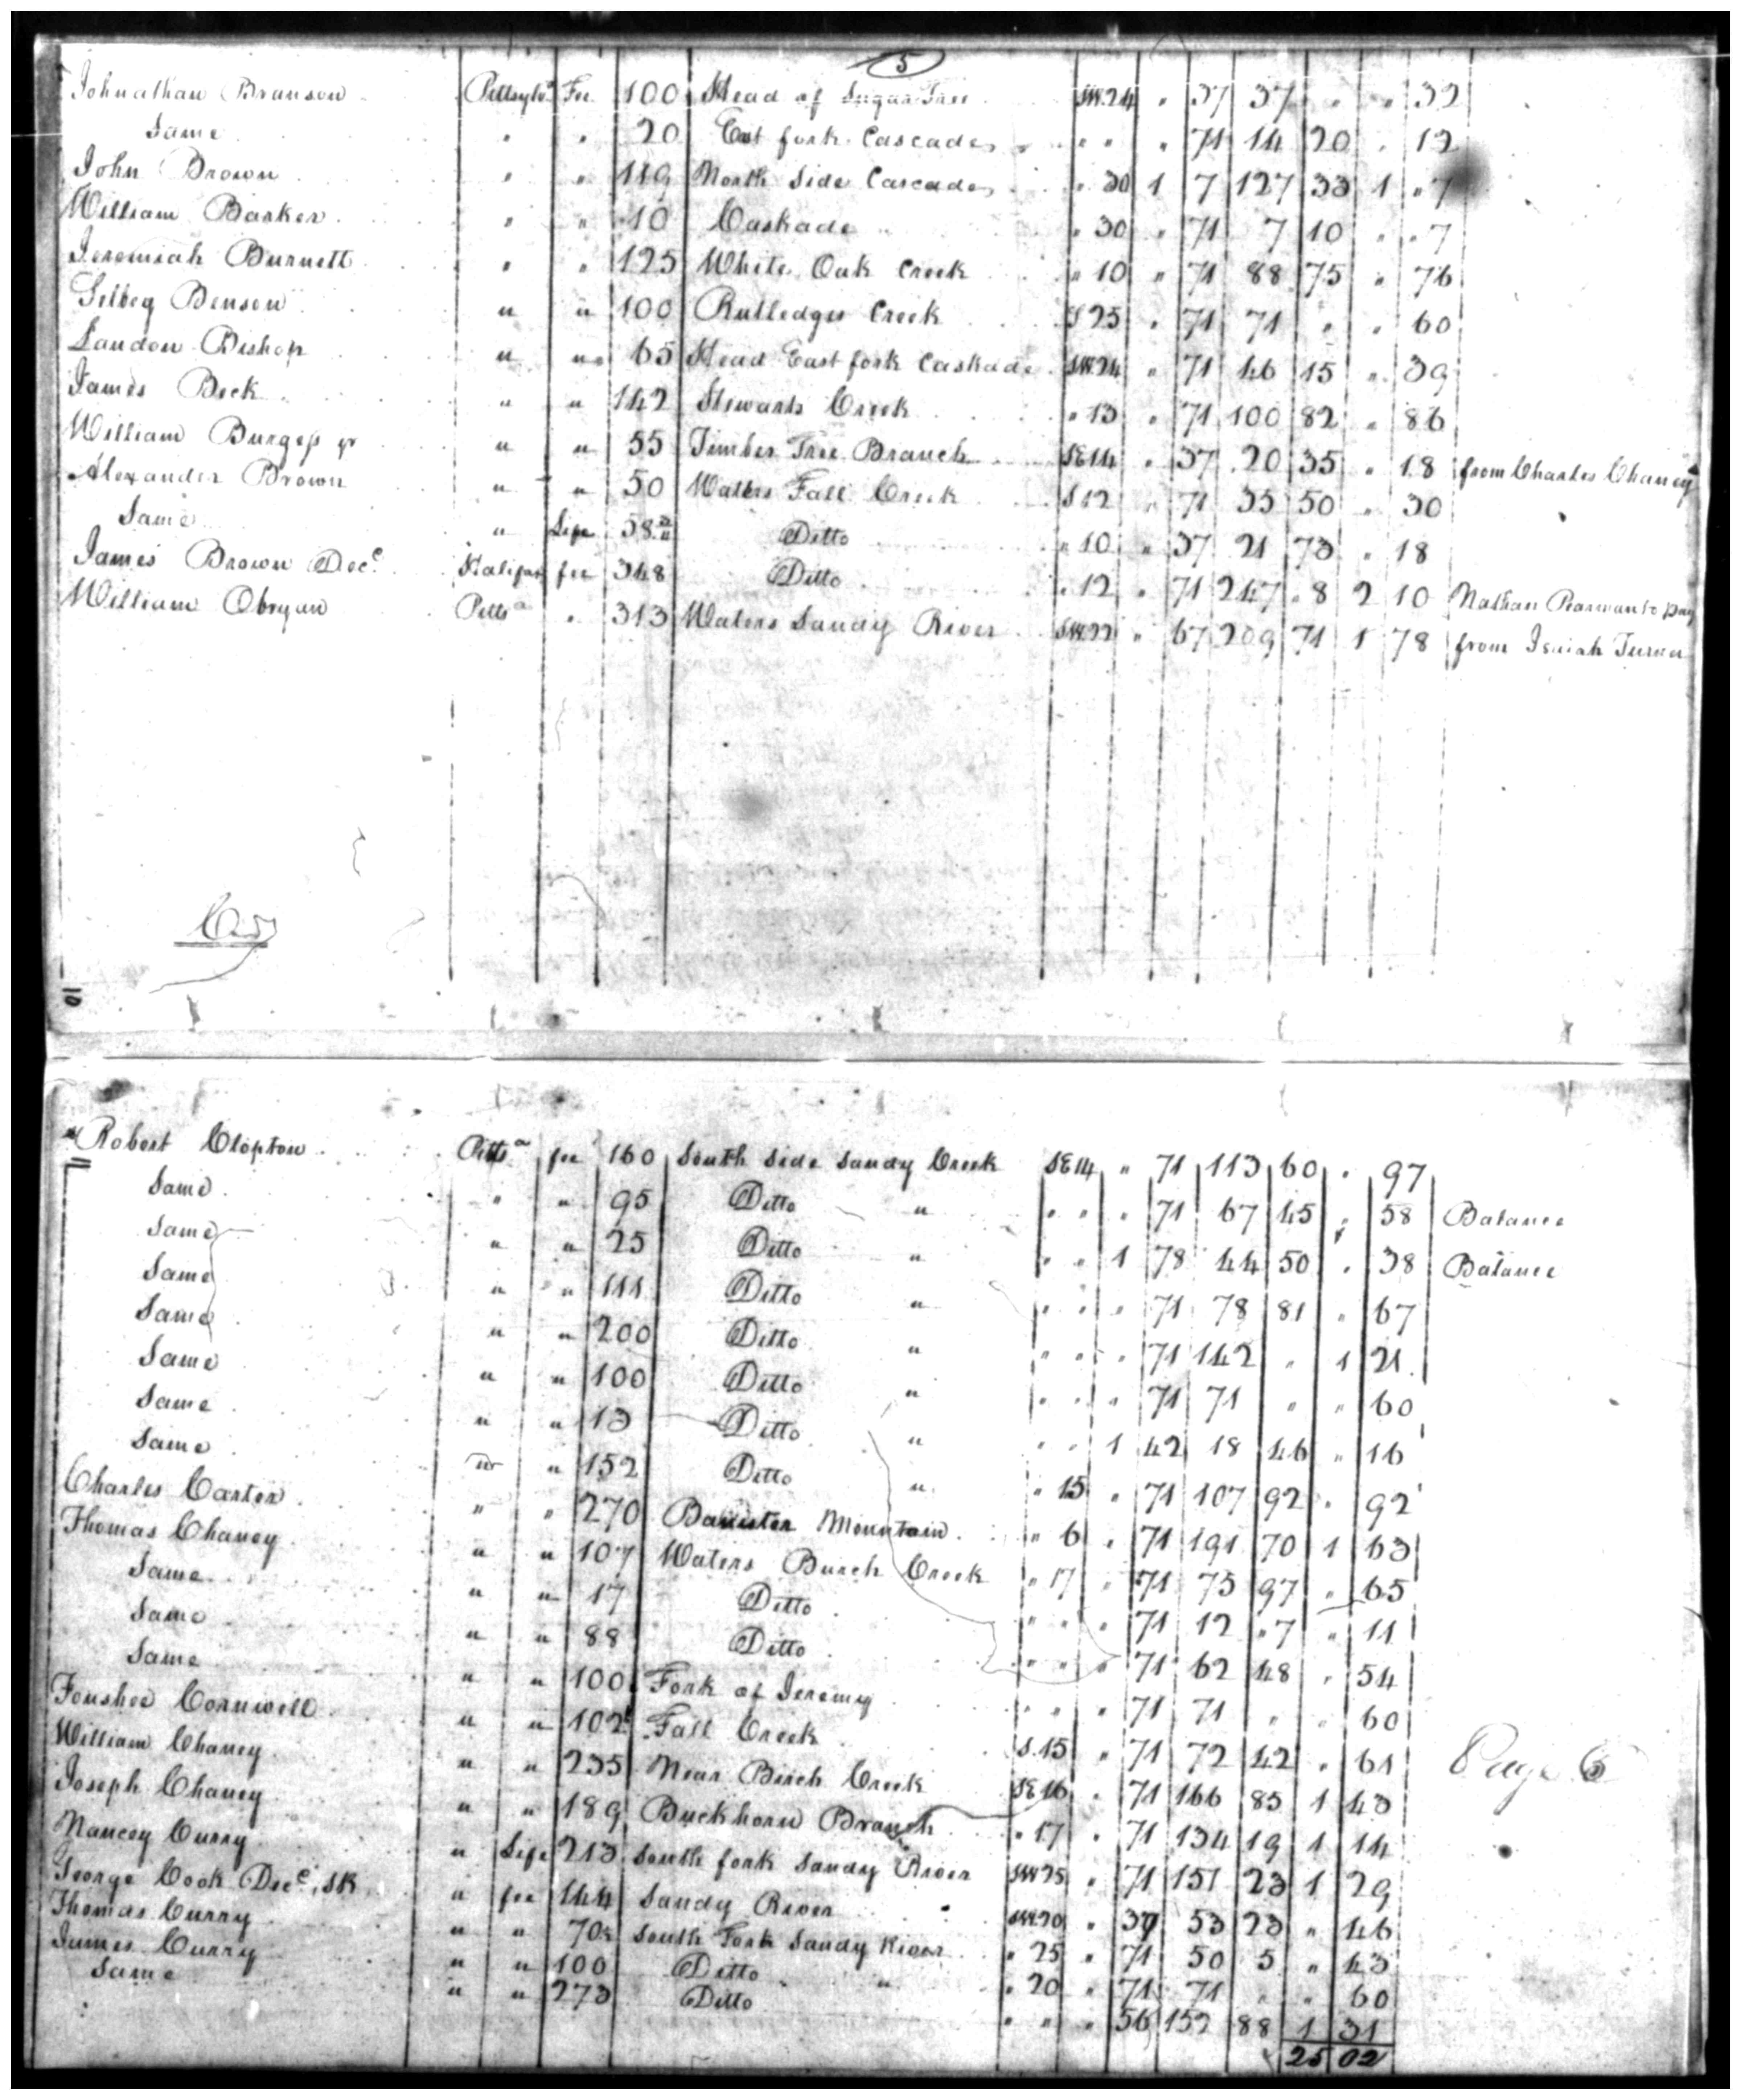 5
Johnathan Branson Pittsylva Fee 100 Head of Sugar Tree SW.24 " 37 37 " " 32
Same " " 20 East fork Cascades " " " 71 14 20 " 12
John Brown " " 119 North Side Cascades " 30 1 7 127 33 1 " 7
William Barker " " 10 Caskade " 30 " 71 7 10 " " 7
Jeremiah Burnett " " 125 White Oak Creek " 10 " 71 88 75 " 76
Selbey Benson " " 100 Rutledges Creek S 25 " 71 71 " " 60
Landon Bishop " " 65 Head East fork Caskade SW.24 " 71 46 15 " 39
James Beck " " 142 Stewarts Creek " 13 " 71 100 82 " 86
William Burgess jr " " 55 Timber Tree Branch SE14 " 37 20 35 " 18 from Charles Chaney
Alexander Brown " " 50 Waters Fall Creek S 12 " 71 35 50 " 30
Same " Life 58 Ditto " 10 " 37 21 73 " 18
James Brown Dec.d Halifax fee 348 Ditto " 12 " 71 247 " 8 2 10 Nathan to pay
William Obryan Pittsa " 313 Waters Sandy River SW.22 " 67 209 71 1 78 from Isaiah Turner
10
Robert Clopton Pittsa fee 160 South Side Sandy Creek SE14 " 71 113 60 " 97
Same " " 95 Ditto " " " " 71 67 45 " 58 Balance
Same " " 25 Ditto " " " 1 78 44 50 " 38 Balance
Same " " 111 Ditto " " " " 71 78 81 " 67
Same " " 200 Ditto " " " " 71 142 " 1 21
Same " " 100 Ditto " " " " 71 71 " " 60
Same " " 13 Ditto " " " 1 42 18 46 " 16
Same " " 152 Ditto " " 15 " 71 107 92 " 92
Charles Carter " " 270 Banister Mountain " 6 " 71 191 70 1 63
Thomas Chaney " " 107 Waters Burch Creek " 17 " 71 75 97 " 65
Same " " 17 Ditto " " " 71 12 " 7 " 11
Same " " 88 Ditto " " " 71 62 48 " 54
Same " " 100 Fork of Jeremy " " " 71 71 " " 60
Foushee Cornwell " " 102 Fall Creek S.15 " 71 72 42 " 61
William Chaney " " 235 Near Birch Creek SE16 " 71 166 85 1 43
Joseph Chaney " " 189 Buckhorn Branch " 17 " 71 134 19 1 14
Nancey Curry " Life 213 South fork Sandy River SW25 " 71 151 23 1 29
George Cook Dec.d, SR " fee 144 Sandy River SW.20 " 37 53 23 " 46
Thomas Curry " " 70½ South Fork Sandy River " 25 " 71 50 5 " 43
James Curry " " 100 Ditto " " 20 " 71 71 " " 60
Same " " 273 Ditto " " " 56 152 88 1 31
25 02
Page 6